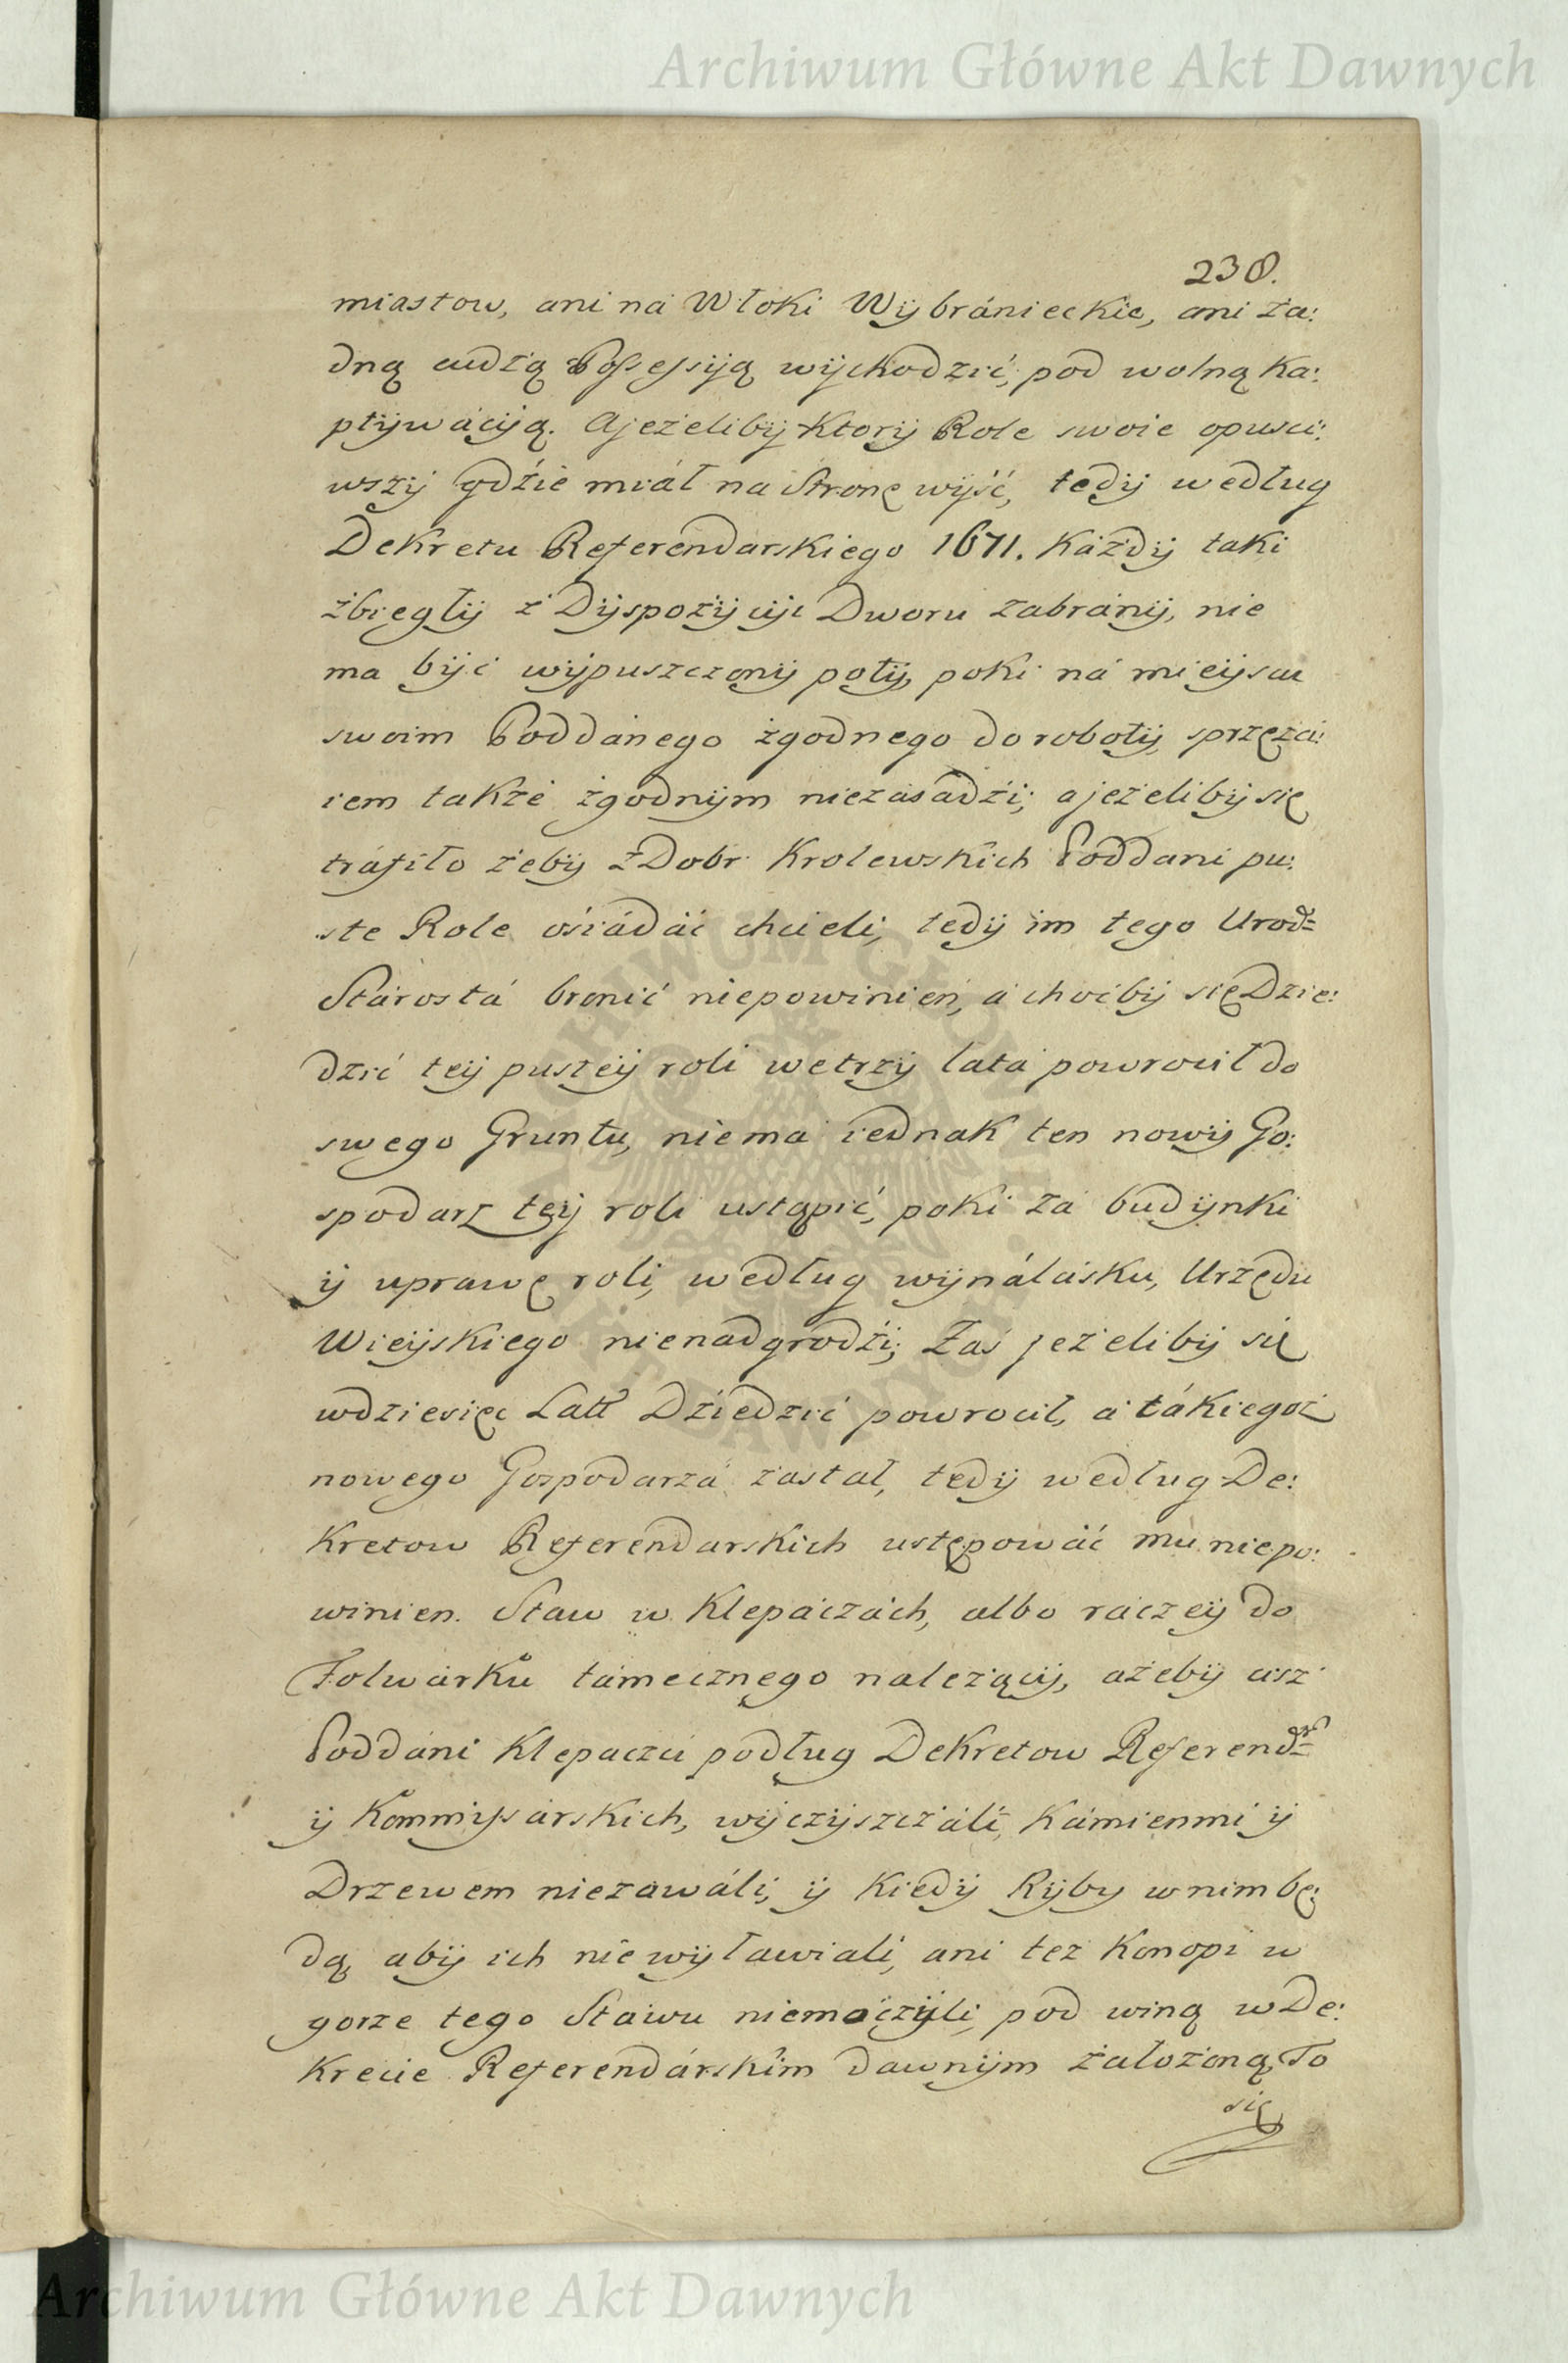 Archiwum Główne Akt Dawnych
238.
miastow, ani na Włoki Wÿbránieckie, ani ża:
dną cudzą Possessÿią wÿchodzić, pod wolną Ka:
ptÿwáciÿą. A jeżelibÿ Ktorÿ Role swoie opusci:
wszÿ gdźie miáł na Stronę wÿść, tedÿ według
Dekretu Referendarskiego 1671. Każdÿ taki
zbiegłÿ z Dÿspozÿcÿi Dworu zabránÿ, nie
ma bÿć wÿpuszczonÿ potÿ, poki ná mieÿscu
swoim Poddánego zgodnego do robotÿ, sprzęża:
iem także zgodnÿm niezásadźi; a jeżelibÿ się
tráfiło żebÿ z Dobr Krolewskich Poddani pu:
ste Role ośiádáć chcieli, tedÿ im tego Urodz
Stárostá bronić niepowinień, á choćbÿ się Dzie:
dzić teÿ pusteÿ roli wetrzÿ látá powrocił do
swego Gruntu, niema iednak ten nowÿ Go:
spodarz teÿ roli ustąpić, poki zá budÿnki
ÿ uprawę roli, według wÿnálásku, Urzędu
Wieÿskiego nienadgrodźi; Zaś jeżelibÿ się
wdziesięć Latt Dźiedzić powrocił, á tákiegoż
nowego Gospodarzá zastał, tedÿ według De:
kretow Referendarskich ustępowáć mu niepo:
winien. Staw w Klepáczách, albo ráczeÿ do
Folwárku támecznego należącÿ, ażebÿ ciż
Poddáni Klepaczci podług Dekretow Referend
ÿ Kommissárskich, wÿczÿszczáli, Kámienmi ÿ
Drzewem niezawáli, ÿ Kiedÿ Rÿby w nim bę:
dą, abÿ ich niewÿławiali, ani też Konopi w
gorze tego Stáwu niemoczÿli, pod winą w De:
krecie Referendárskim dawnÿm założoną, To
się
Archiwum Główne Akt Dawnych